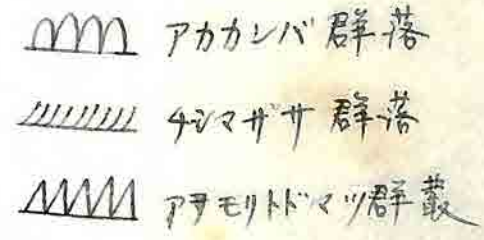 アカカンバ群落
チシマザサ群落
アヲモリトドマツ群叢